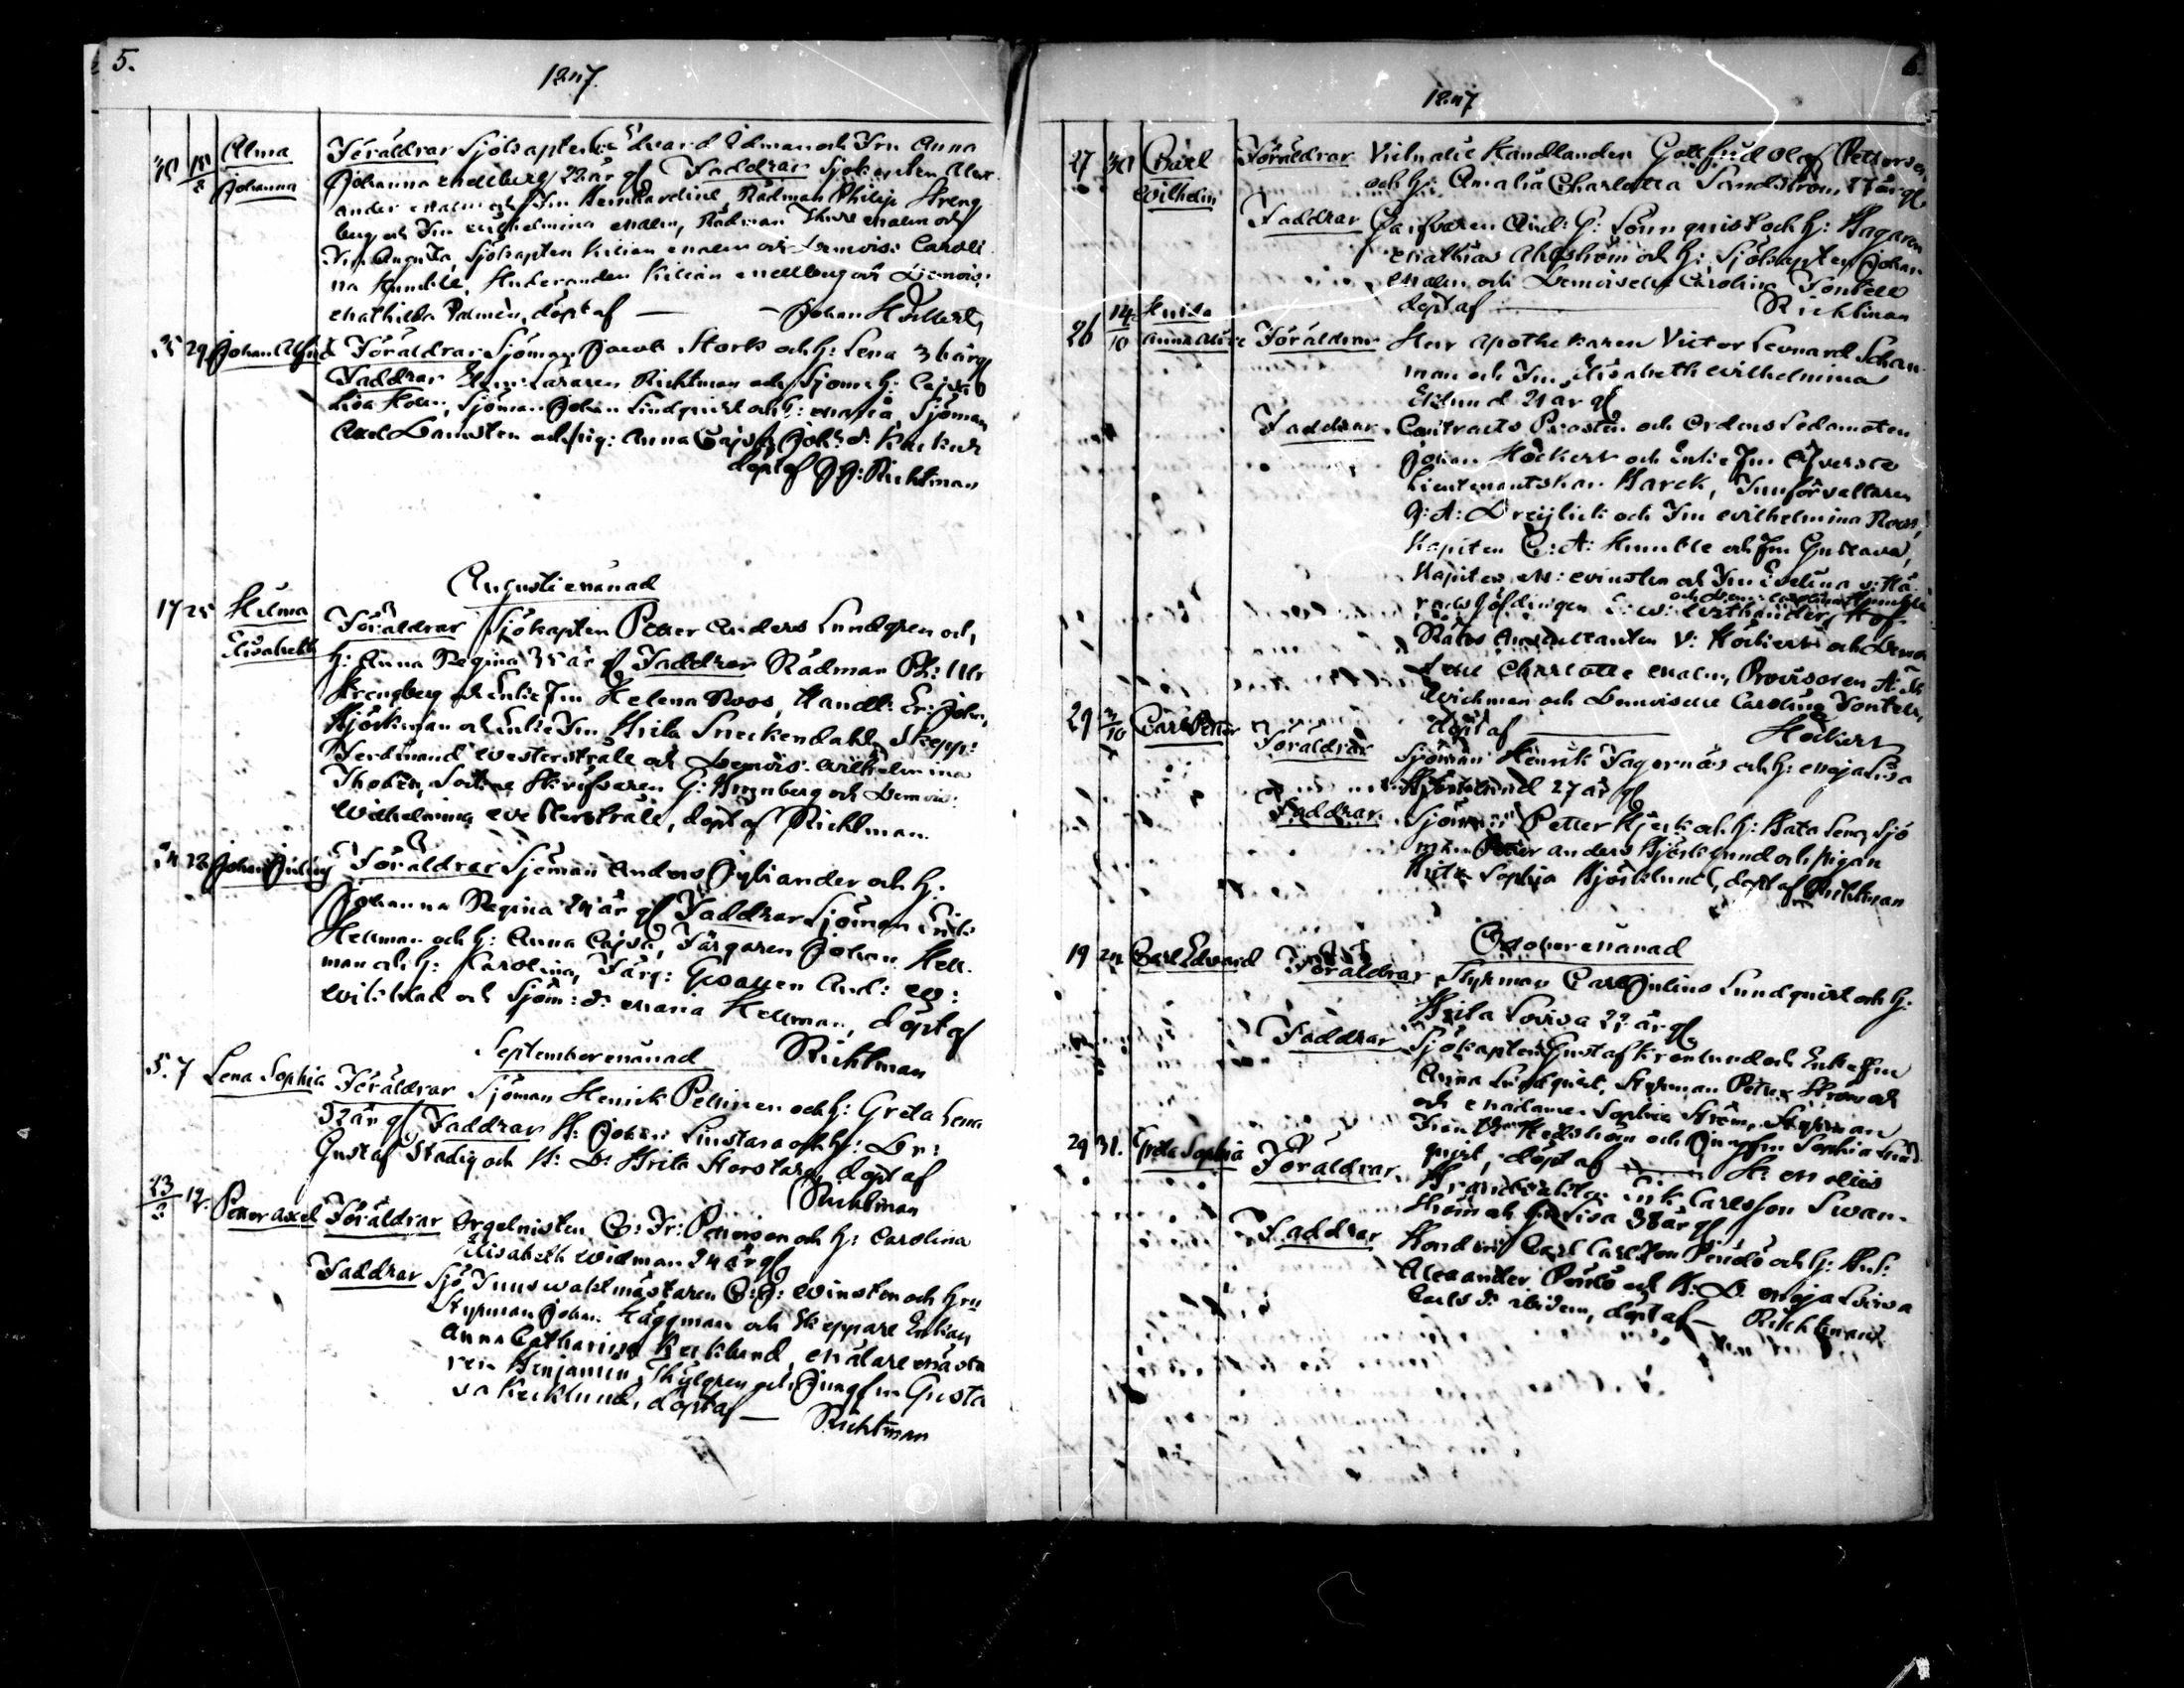 5.
1847.
30 15/8 Alma Föräldrar Sjökapten Edvard Ödman och Fru Anna
Johanna Johanna Mellberg 22 år gl Faddrar Sjökapten Alex-
ander Malm och Fru Bernhardine, Rådman Philip Streng
berg och Fru Wilhelmina Malm, Rådman Thure Malm och
Fru Augusta, Sjökapten Kilian Malm och Demois: Caroli
na Humble, Studeranden Kilian Mellberg och Demois:
Mathilda Palmén, döpt af — Johan Höckert,
25 29 Johan Alfrid Föräldrar Sjöman Jacob Stork och h: Lena 36 år gl
Faddrar Elem: Läraren Richtman och Sjöm: h: Cajsa
Lisa Holm, Sjöman Johan Lindqvist och h: Maria, Sjöman
Axel Damsten och pig: Anna Cajsa Joh: d:
döpt af J J: Richtman
Augusti Månad
17 25 Hilma Föräldrar Sjökapten Petter Anders Lundgren och
Elisabeth h: Anna Regina 35 år gl Faddrar Rådman Ph: Ulr
Strengberg och Enke Fru Helena Roos, Handl: Er: Joh:
Björkman och Enke Fru Brita Sneckendahl, Skepp:
Ferdinand Westerstråle och Demois: Wilhelmina
Thodén, Sockne Skrifvaren G: Strengberg och Demois:
Wilhelmina Westerstråle, döpt af Richtman.
24 28 Johan Julius Föräldrar Sjöman Anders Jyliander och h:
Johanna Regina 24 år gl Faddrar Sjöman Erik
Hellman och h: Anna Cajsa, Färgaren Johan Hell-
man och h: Karolina, Färg: Gesällen And: W:
Wikblad och Sjöm: d: Maria Hellman, döpt af
Richtman
September Månad
5. 7 Lena Sophia Föräldrar Sjöman Henrik Pettinen och h: Greta Lena
32 år gl Faddrar B: Johan Linstara och h: Dr:
Gustaf Stadig och B: D: Brita Storstara, döpt af
Richtman
23/8 12. Petter Axel Föräldrar Orgelnisten C: Fr: Petterson och h: Carolina
Elisabeth Widman 24 år gl
Faddrar Sjö Tullsvaktmästaren C: J: Winsten och hru
Styrman Johan Häggman och Skeppare Enkan
Anna Catharina Kecklund, Målare Mästa
ren Benjamin Thylgren och Jungfru Gusta
va Kecklund, döpt af — Richtman
6.
1847
27 30 Carl Föräldrar Victualie Handlanden Gottfrid Olof Petterson,
Wilhelm och h: Amalia Charlotta Sandström, år gl
Faddrar Garfvaren And: G: Lönnqvist och h: Bagaren
Mathias Ahlström och h: Sjökapten Johan
Malm och Demoiselle Carolina Fontell
döpt af — Richtman
26 14/10 Hulda
Anna Alice Föräldrar Herr Apothekaren Victor Leonard Schau-
man och Fru Elisabeth Wilhelmina
Eklund 21 år gl
Faddrar Contracts Prosten och Ordens Ledamoten
Johan Höckert och Enke Fru Öfverste
Lieutenantskan Barck, Tullförvaltaren
G: A: Dreijlick och Fru Wilhelmina Roos,
Kapiten C: A: Humble och Fru Gustava,
Kapiten M: Winsten och Fru Evelina, v: Hä-
radshöfdingen E: W: Wethander, Hof-
och Dem: Carolina Humble
Rätts Auscultanten V: Höckert och Demoi
selle Charlotte Malm, Provisoren A: Th:
Wichman och Demoiselle Carolina Fontell,
döpt af — Höckert
29 3/10 Carl Petter Föräldrar Sjöman Henrik Fagernäs och h: Maja Lisa
Björklund 27 år gl
Faddrar Sjöman Petter Björk och h: Kata Lena, Sjö
man Petter Anders Björklund och Pigan
Brita Sophia Björklund, döpt af Richtman
October Månad
19 24 Carl Edvard Föräldrar Styrman Carl Julius Lundqvist och h:
Brita Lovisa 22 år gl
Faddrar Sjökapten Gustaf Kronlund och Enke Fru
Anna Lundqvist, Styrman Petter Ström och
och Madamen Sophia Ström, Styrman
Hedström och Jungfru Sophia Lund
qvist, döpt af — H: Molis
29 31. Greta Sophia Föräldrar Brandvakten Erik Carlsson Swan-
ström och h: Lisa 38 år gl
Faddrar Bonden Carl Carlsson Pendö och h: Bs:
Alexander Pendö och B: D: Maja Lovisa
Carls d: ibidem, döpt af — Richtman